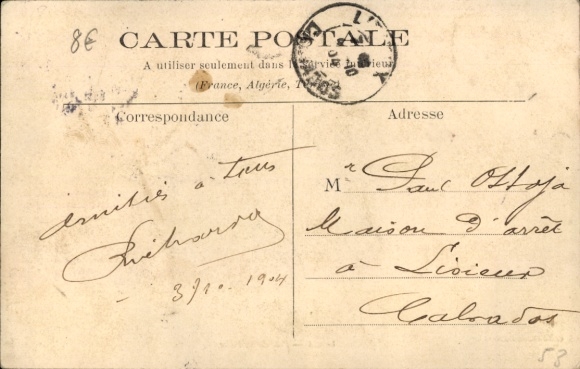 8€
CARTE POSTALE
A utiliser seulement dans le service intérieur
(France, Algérie, T
Correspondance
Adresse
Amitiés à tous
3/10. 1904
Mr Paul Ossoja
Maison d'arrêt
à Lisieux
Calvados
53